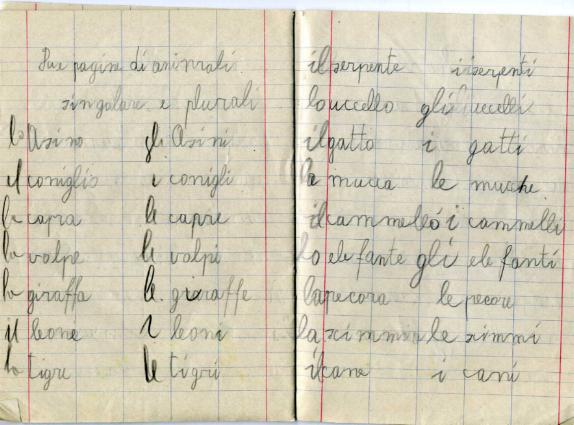 Due pagine di animali
singolare e plurali
lo Asino gli Asini
il coniglio i conigli
la capra le capre
la volpe le volpi
la giraffa le giraffe
il leone i leoni
la tigre le tigri
il serpente i serpenti
lo uccello gli uccelli
il gatto i gatti
la mucca le mucche
il cammello i cammelli
lo elefante gli elefanti
la pecora le pecore
la scimmia le scimmi
il cane i cani